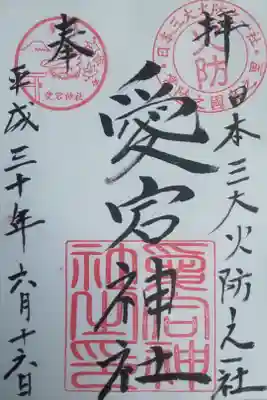 拝
日本三大火防之一社
愛宕神社
奉
平成三十年六月十六日
火防
愛宕神社
愛宕神
社之印